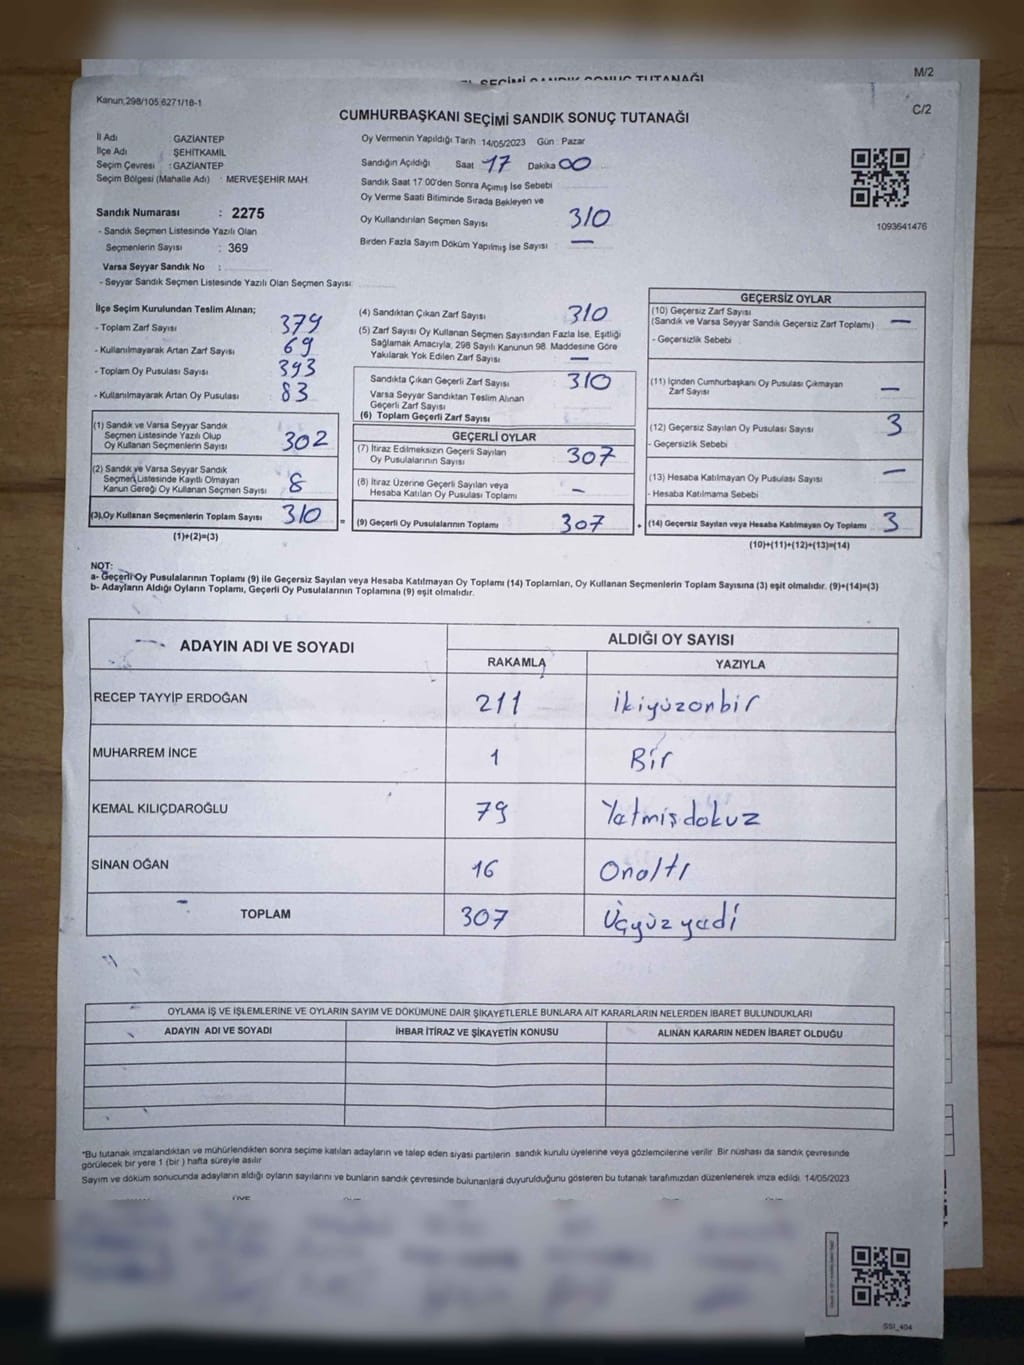 M/2
SEÇİMİ SANDIK SONUÇ TUTANAĞI
Kanun:298/105 6271/18-1
C/2
CUMHURBAŞKANI SEÇİMİ SANDIK SONUÇ TUTANAĞI
İl Adı GAZİANTEP
İlçe Adı : ŞEHİTKAMİL
Seçim Çevresi : GAZİANTEP
Seçim Bölgesi (Mahalle Adı) : MERVEŞEHİR MAH.
Sandık Numarası : 2275
- Sandık Seçmen Listesinde Yazılı Olan
Seçmenlerin Sayısı : 369
Varsa Seyyar Sandık No :
- Seyyar Sandık Seçmen Listesinde Yazılı Olan Seçmen Sayısı:
Oy Vermenin Yapıldığı Tarih 14/05/2023 Gün : Pazar
Sandığın Açıldığı Saat 17 Dakika 00
Sandık Saat 17:00'den Sonra Açımış İse Sebebi
Oy Verme Saati Bitiminde Sırada Bekleyen ve
Oy Kullandırılan Seçmen Sayısı 310
Birden Fazla Sayım Döküm Yapılmış İse Sayısı : —
1093641476
İlçe Seçim Kurulundan Teslim Alınan;
- Toplam Zarf Sayısı 379
- Kullanılmayarak Artan Zarf Sayısı 69
- Toplam Oy Pusulası Sayısı 393
- Kullanılmayarak Artan Oy Pusulası 83
(1) Sandık ve Varsa Seyyar Sandık
Seçmen Listesinde Yazılı Olup
Oy Kullanan Seçmenlerin Sayısı 302
(2) Sandık ve Varsa Seyyar Sandık
Seçmen Listesinde Kayıtlı Olmayan
Kanun Gereği Oy Kullanan Seçmen Sayısı 8
(3) Oy Kullanan Seçmenlerin Toplam Sayısı 310
(1)+(2)=(3)
(4) Sandıktan Çıkan Zarf Sayısı 310
(5) Zarf Sayısı Oy Kullanan Seçmen Sayısından Fazla İse, Eşitliği
Sağlamak Amacıyla, 298 Sayılı Kanunun 98. Maddesine Göre
Yakılarak Yok Edilen Zarf Sayısı —
Sandıkta Çıkan Geçerli Zarf Sayısı 310
Varsa Seyyar Sandıktan Teslim Alınan
Geçerli Zarf Sayısı
(6) Toplam Geçerli Zarf Sayısı
GEÇERLİ OYLAR
(7) İtiraz Edilmeksizin Geçerli Sayılan
Oy Pusulalarının Sayısı 307
(8) İtiraz Üzerine Geçerli Sayılan veya
Hesaba Katılan Oy Pusulası Toplamı –
= (9) Geçerli Oy Pusulalarının Toplamı 307 +
GEÇERSİZ OYLAR
(10) Geçersiz Zarf Sayısı
(Sandık ve Varsa Seyyar Sandık Geçersiz Zarf Toplamı) —
- Geçersizlik Sebebi
(11) İçinden Cumhurbaşkanı Oy Pusulası Çıkmayan
Zarf Sayısı —
(12) Geçersiz Sayılan Oy Pusulası Sayısı 3
- Geçersizlik Sebebi
(13) Hesaba Katılmayan Oy Pusulası Sayısı —
- Hesaba Katılmama Sebebi
(14) Geçersiz Sayılan veya Hesaba Katılmayan Oy Toplamı 3
(10)+(11)+(12)+(13)=(14)
NOT:
a- Geçerli Oy Pusulalarının Toplamı (9) ile Geçersiz Sayılan veya Hesaba Katılmayan Oy Toplamı (14) Toplamları, Oy Kullanan Seçmenlerin Toplam Sayısına (3) eşit olmalıdır. (9)+(14)=(3)
b- Adayların Aldığı Oyların Toplamı, Geçerli Oy Pusulalarının Toplamına (9) eşit olmalıdır.
ADAYIN ADI VE SOYADI ALDIĞI OY SAYISI
RAKAMLA YAZIYLA
RECEP TAYYİP ERDOĞAN 211 İkiyüzonbir
MUHARREM İNCE 1 Bir
KEMAL KILIÇDAROĞLU 79 Yatmişdokuz
SİNAN OĞAN 16 Onaltı
TOPLAM 307 Üçyüzyedi
OYLAMA İŞ VE İŞLEMLERİNE VE OYLARIN SAYIM VE DÖKÜMÜNE DAİR ŞİKAYETLERLE BUNLARA AİT KARARLARIN NELERDEN İBARET BULUNDUKLARI
ADAYIN ADI VE SOYADI İHBAR İTİRAZ VE ŞİKAYETİN KONUSU ALINAN KARARIN NEDEN İBARET OLDUĞU
*Bu tutanak imzalandıktan ve mühürlendikten sonra seçime katılan adayların ve talep eden siyasi partilerin sandık kurulu üyelerine veya gözlemcilerine verilir. Bir nüshası da sandık çevresinde
görülecek bir yere 1 (bir) hafta süreyle asılır
Sayım ve döküm sonucunda adayların aldığı oyların sayılarını ve bunların sandık çevresinde bulunanlara duyurulduğunu gösteren bu tutanak tarafımızdan düzenlenerek imza edildi. 14/05/2023
SSI_404